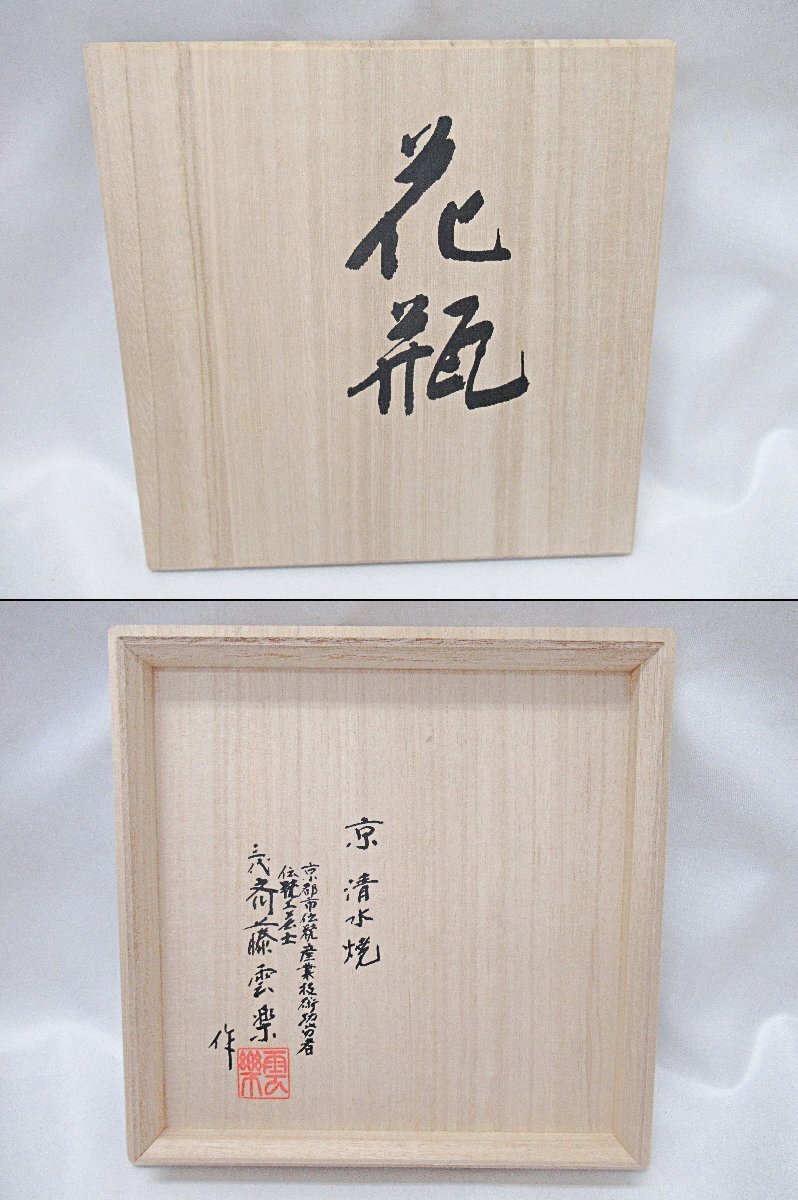 花瓶
京 清水焼
京都市伝統産業技術功労者
伝統工芸士
三代斎藤雲楽
作
雲樂